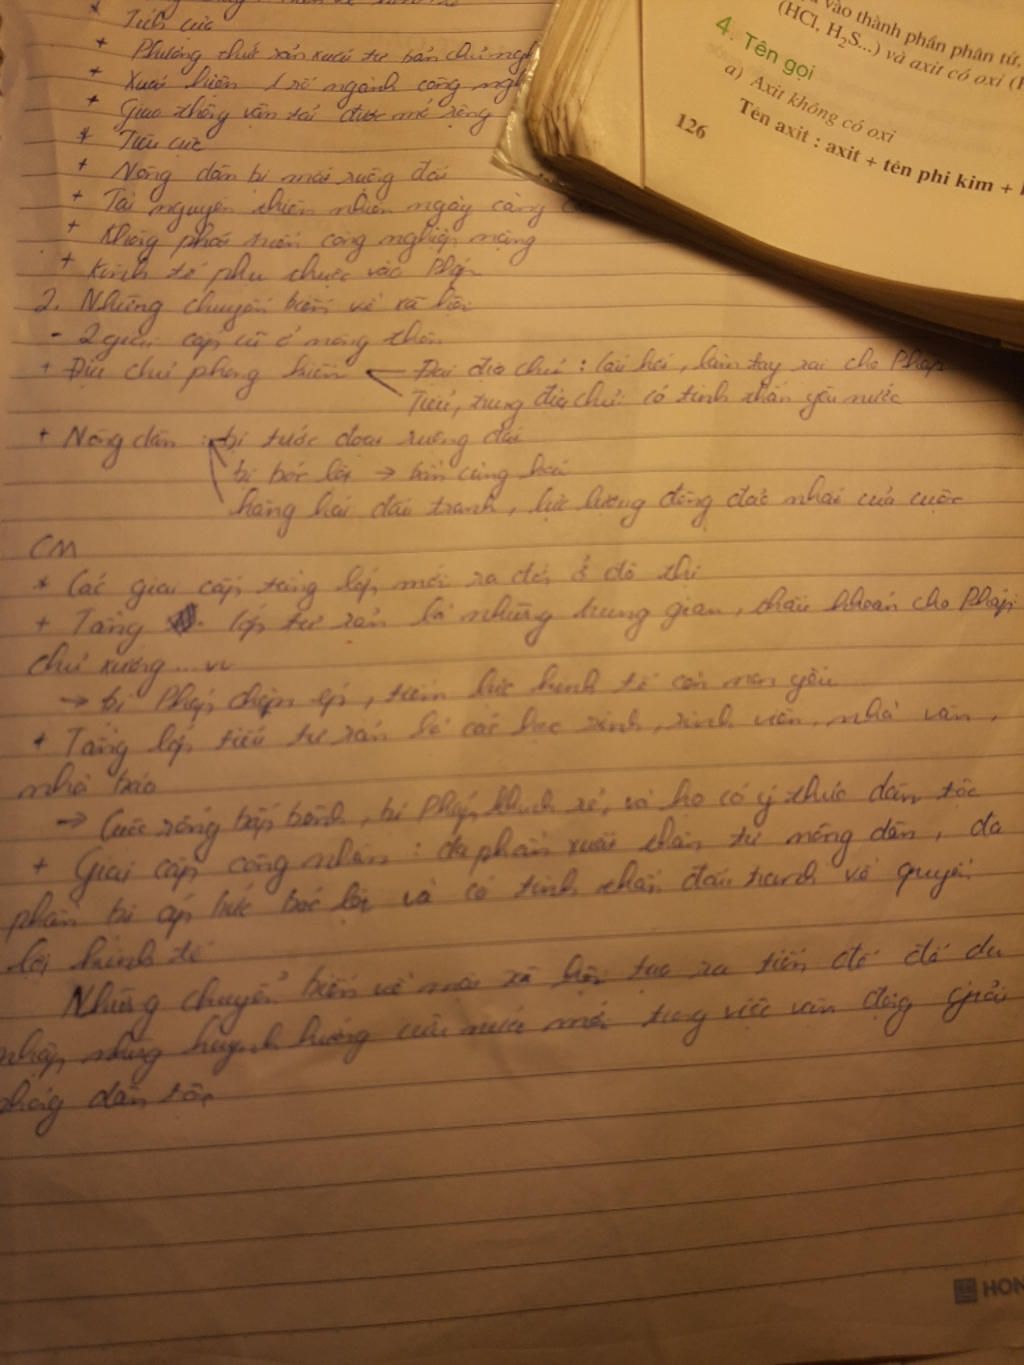 * Tích cực
+ Phương thức sản xuất tư bản chủ ngh
+ Xuất hiện 1 số ngành công ngh
+ Giao thông vận tải được mở rộng
* Tiêu cực
+ Nông dân bị mất ruộng đất
+ Tài nguyên thiên nhiên ngày càng
+ Không phát triển công nghiệp nặng
+ Kinh tế phụ thuộc vào Pháp
2. Những chuyển biến về xã hội
- 2 giai cấp cũ ở nông thôn
+ Địa chủ phong kiến Đại địa chủ: câu kết, làm tay sai cho Pháp
Tiểu, trung địa chủ: có tinh thần yêu nước
+ Nông dân : bị tước đoạt ruộng đất
bị bóc lột → bần cùng hoá
hăng hái đấu tranh, lực lượng đông đảo nhất của cuộc
CM
* Các giai cấp, tầng lớp mới ra đời ở đô thị
+ Tầng lớp tư sản là những trung gian, thầu khoán cho Pháp,
chủ xưởng ... vv
→ bị Pháp chèn ép, tiềm lực kinh tế còn non yếu
+ Tầng lớp tiểu tư sản là các học sinh, sinh viên, nhà văn,
nhà báo
→ Cuộc sống bấp bênh, bị Pháp khinh rẻ, và họ có ý thức dân tộc
+ Giai cấp công nhân : đa phần xuất thân từ nông dân, đa
phần bị áp bức bóc lột và có tinh thần đấu tranh vì quyền
lợi kinh tế
Những chuyển biến về mặt xã hội tạo ra tiền đề để du
nhập những khuynh hướng cứu nước mới trong việc vận động giải
phóng dân tộc
vào thành phần phân tử,
(HCl, H₂S...) và axit có oxi (
4. Tên gọi
a) Axit không có oxi
Tên axit : axit + tên phi kim +
126
HON